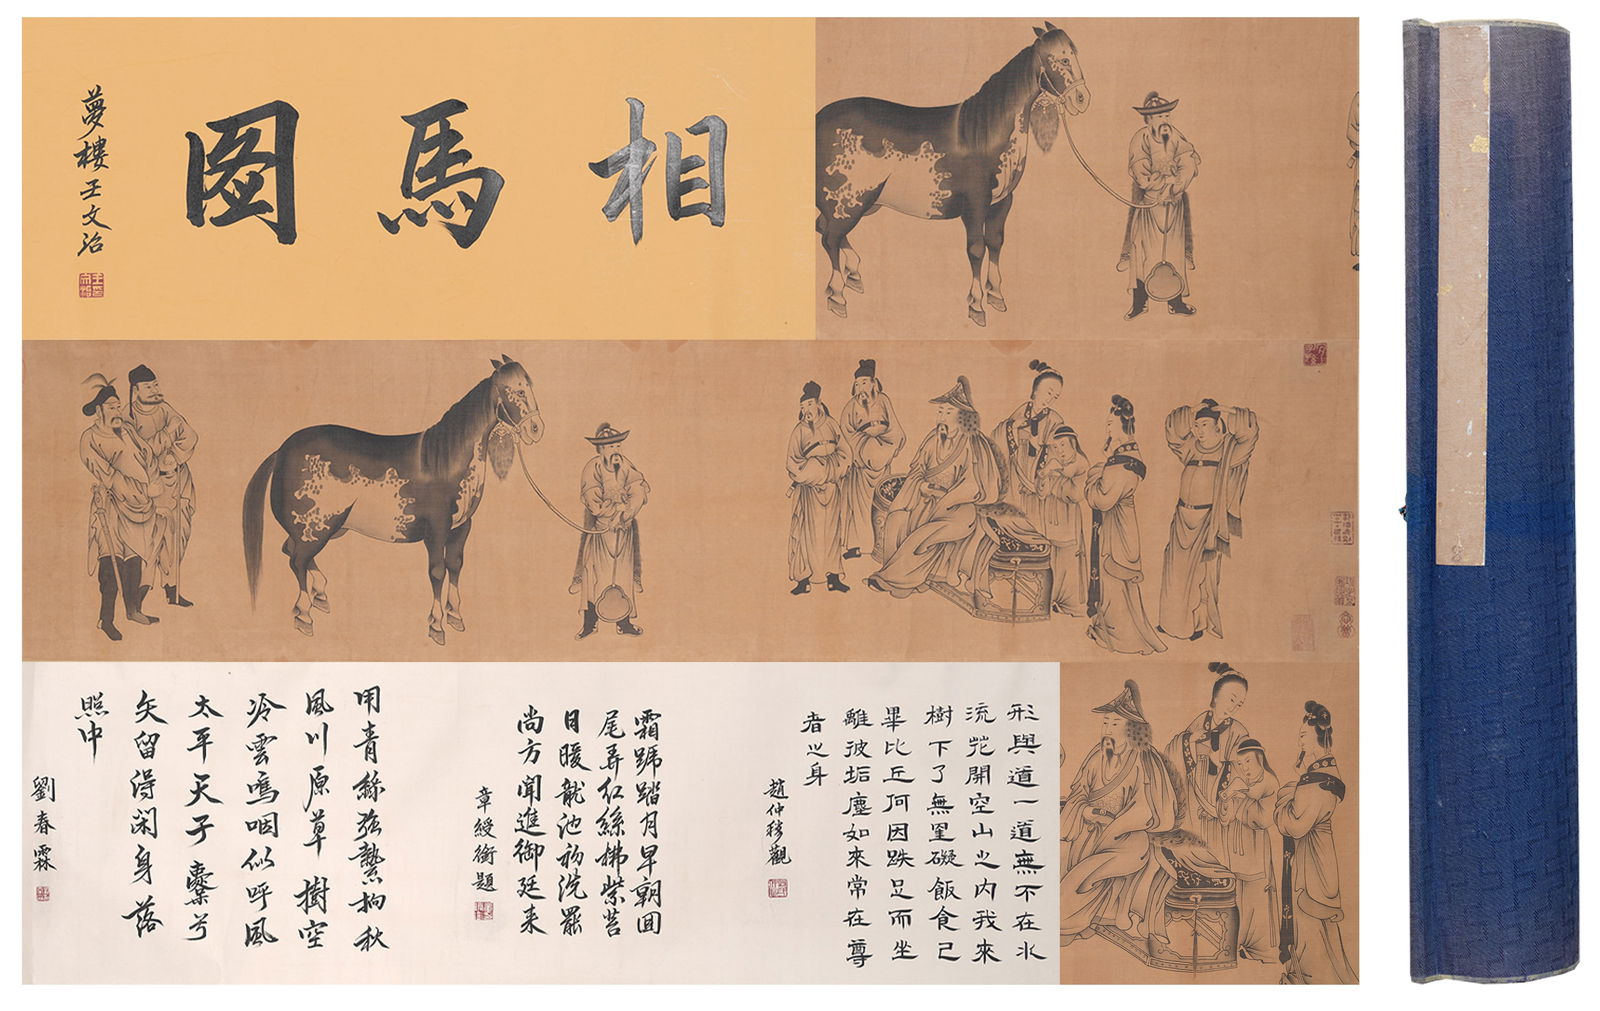 相馬圖
夢樓王文治
形與道一道無不在水
流花開空山之内我來
樹下了無罣礙飯食已
畢比丘何因趺足而坐
離彼垢塵如來常在尊
者之身
趙仲穆觀
霜蹏踏月早朝回
尾弄紅絲拂紫苔
日暖龍池初洗罷
尚方聞進御廷来
章綬銜題
用青絲強縶拘秋
風川原草樹空
冷雲嗚咽似呼風
太平天子櫜弓
矢留得閑身落
照中
劉春霖